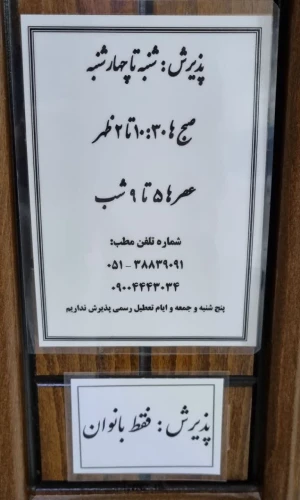 پذیرش: شنبه تا چهارشنبه
صبح ها ۱۰:۳۰ تا ۲ ظهر
عصرها ۵ تا ۹ شب
شماره تلفن مطب:
۰۵۱ - ۳۸۸۳۹۰۹۱
۰۹۰۰۴۴۴۳۰۳۴
پنج شنبه و جمعه و ایام تعطیل رسمی پذیرش نداریم
پذیرش: فقط بانوان